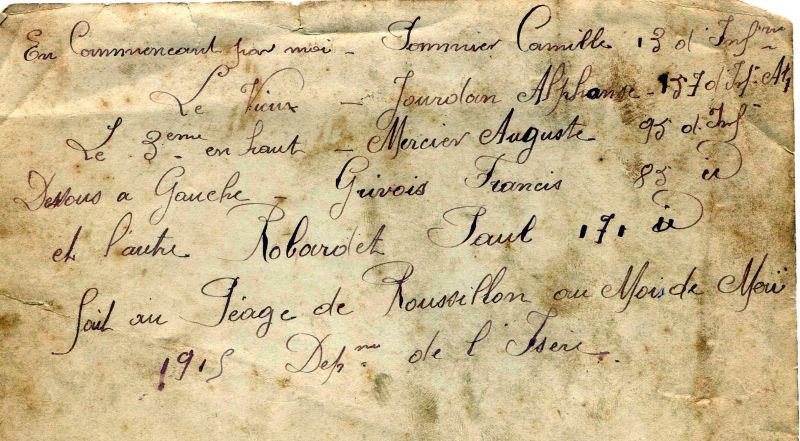 En Commencant par moi - Pommier Camille 13 d'Inf rie
Le Vieux - Jourdan Alphonse - 157 d'Inf. Alp
Le 3 eme en haut - Mercier Auguste 95 d'Inf
Dessous a Gauche - Grivois Francis 85 id
et l'autre Robardet Paul 171 id
fait au Péage de Roussillon au Mois de Mai
1915 Dep de l'Isere.